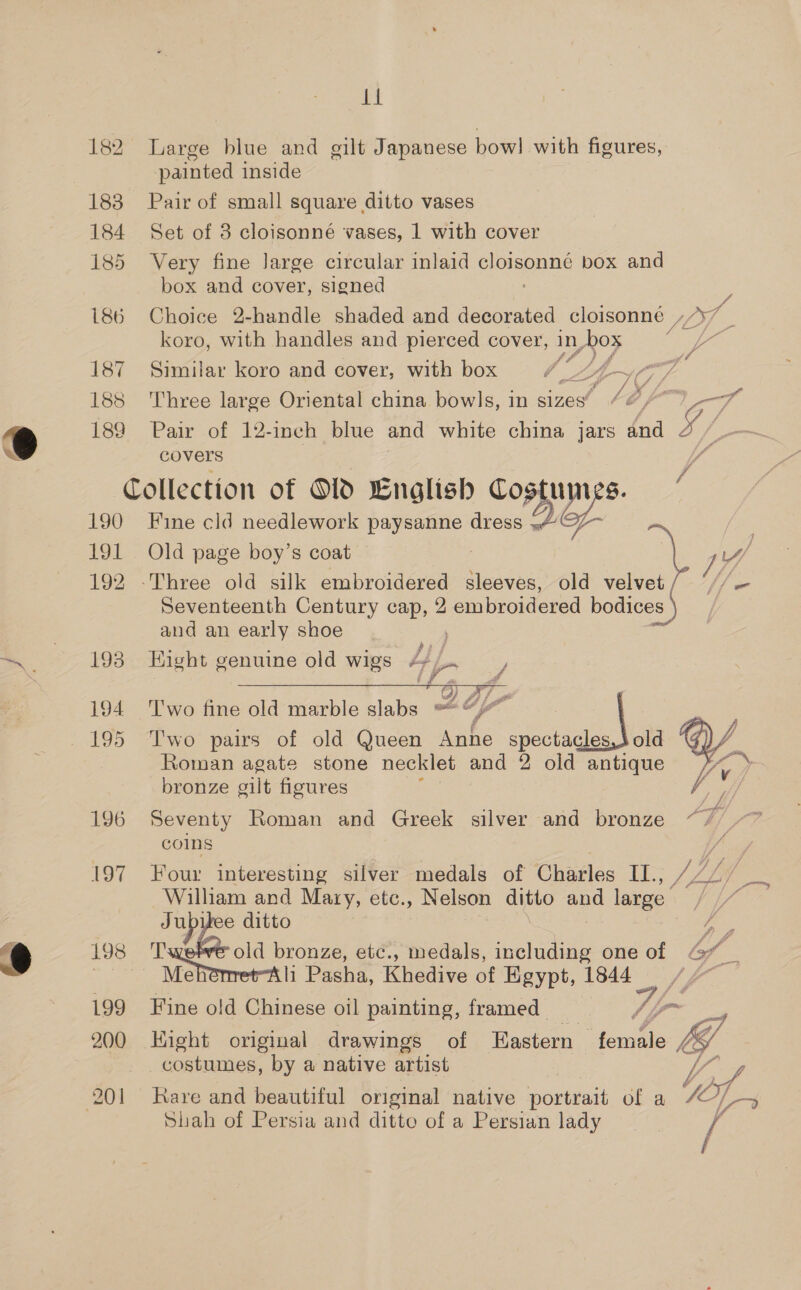 11
182 Large blue and gilt Japanese bowl with figures,
painted inside
183 Pair of small square ditto vases
184 Set of 3 cloisonné vases, 1 with cover
185 Very fine large circular inlaid cloisonné box and
box and cover, signed
186 Choice 2-handle shaded and decorated cloisonné
koro, with handles and pierced cover, in box
187 Similar koro and cover, with box
188 Three large Oriental china bowls, in sizes
189 Pair of 12-inch blue and white china jars and
covers
Collection of Old English Costumes.
190 Fine old needlework paysanne dress
191 Old page boy's coat
192 Three old silk embroidered sleeves, old velvet
Seventeenth Century cap, 2 embroidered bodices
and an early shoe
193 Eight genuine old wigs
194 Two fine old marble slabs
195 Two pairs of old Queen Anne spectacles, old
Roman agate stone necklet and 2 old antique
bronze gilt figures
196 Seventy Roman and Greek silver and bronze
coins
197 Four interesting silver medals of Charles II.,
William and Mary, etc., Nelson ditto and large
Jubilee ditto
198 Twelve old bronze, etc., medals, including one of
Mehemet Ali Pasha, Khedive of Egypt, 1844
199 Fine old Chinese oil painting, framed
200 Eight original drawings of Eastern female
costumes, by a native artist
201 Rare and beautiful original native portrait of a
Shah of Persia and ditto of a Persian lady